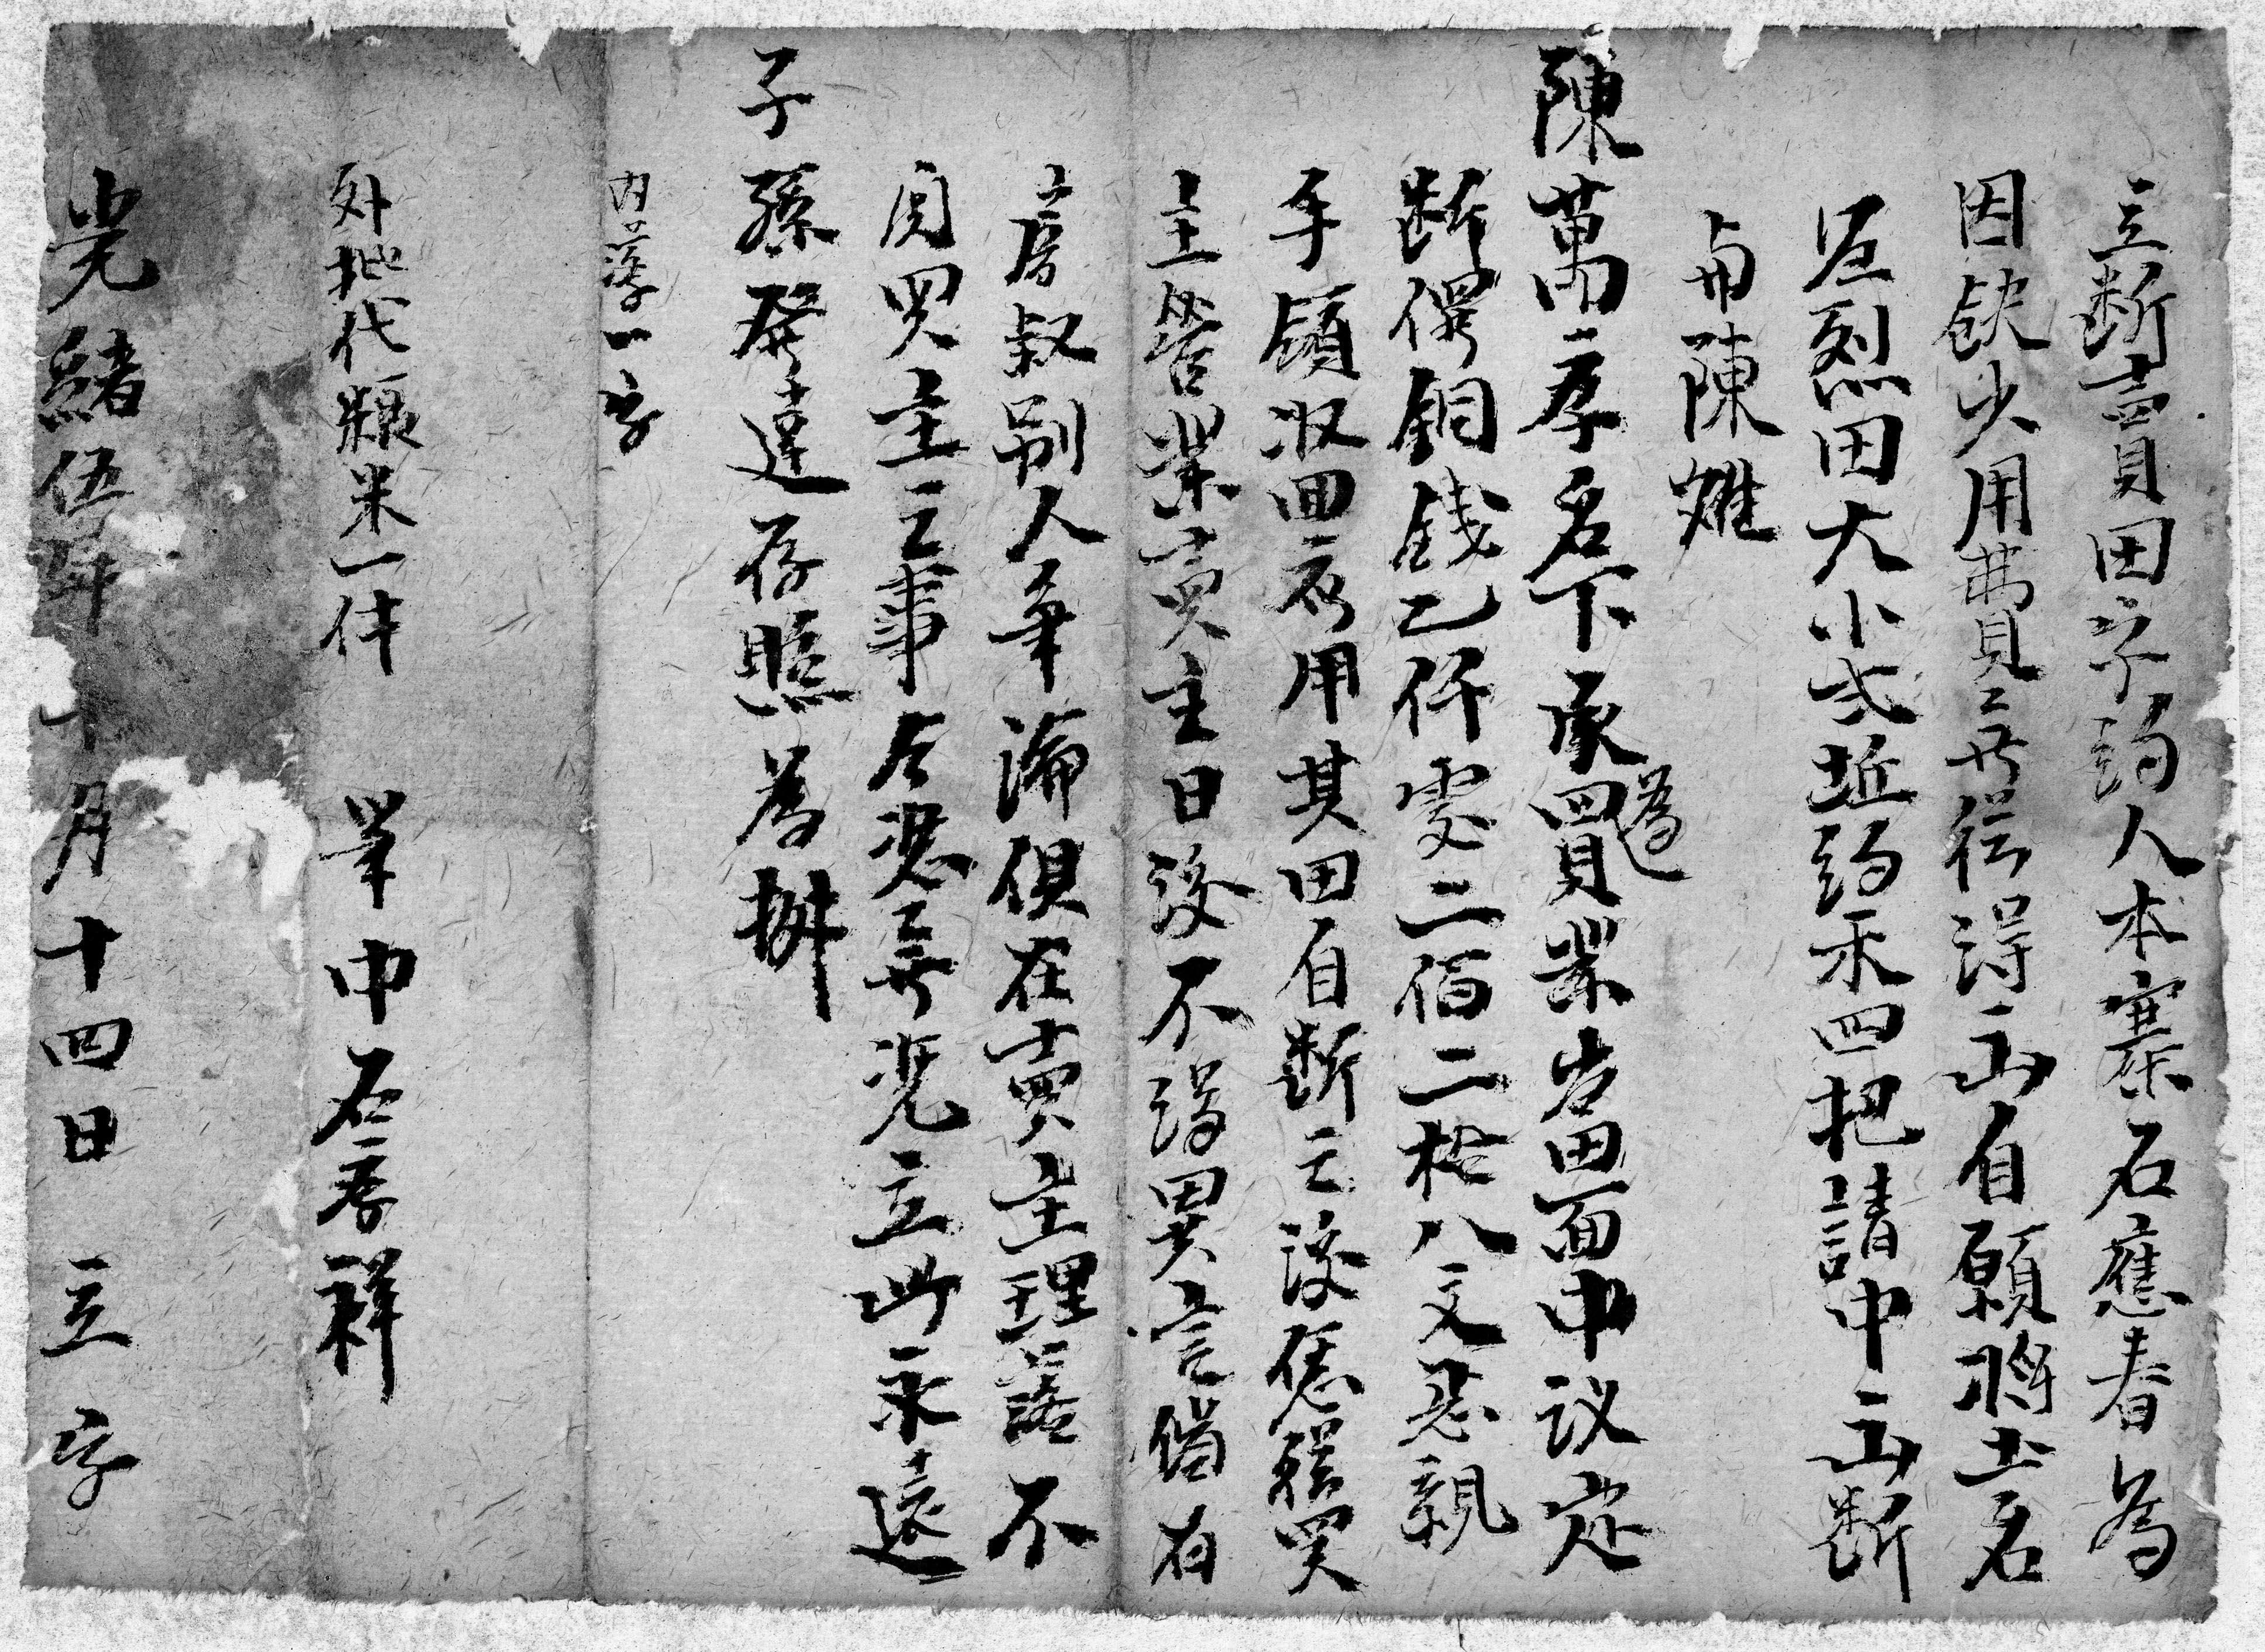 立断賣田字約人本寨石應春為
因缺少用費無從得出自願將土名
坐烈田大小弍坵約禾四把請中出断
与陳雄
陳萬厚名下承買為業当田面中议定
断價銅錢乙仟零二佰二拾八文忍親
手領收回應用其田自断之後慿從买
主管業賣主日後不得異言倘有
房叔別人争論俱在賣主理落不
関买主之事今恐無凴立此永遠
子孫發達存照為拠
内落一字
外批代粮米一件 筆中石三喬祥
光緒伍年十月十四日 立字